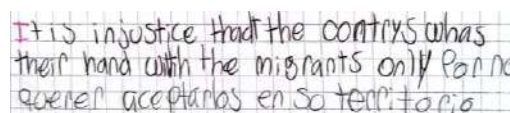 It is injustice thadt the contrys whas
their hand with the migrants only Por no
querer aceptarlos en so territorio